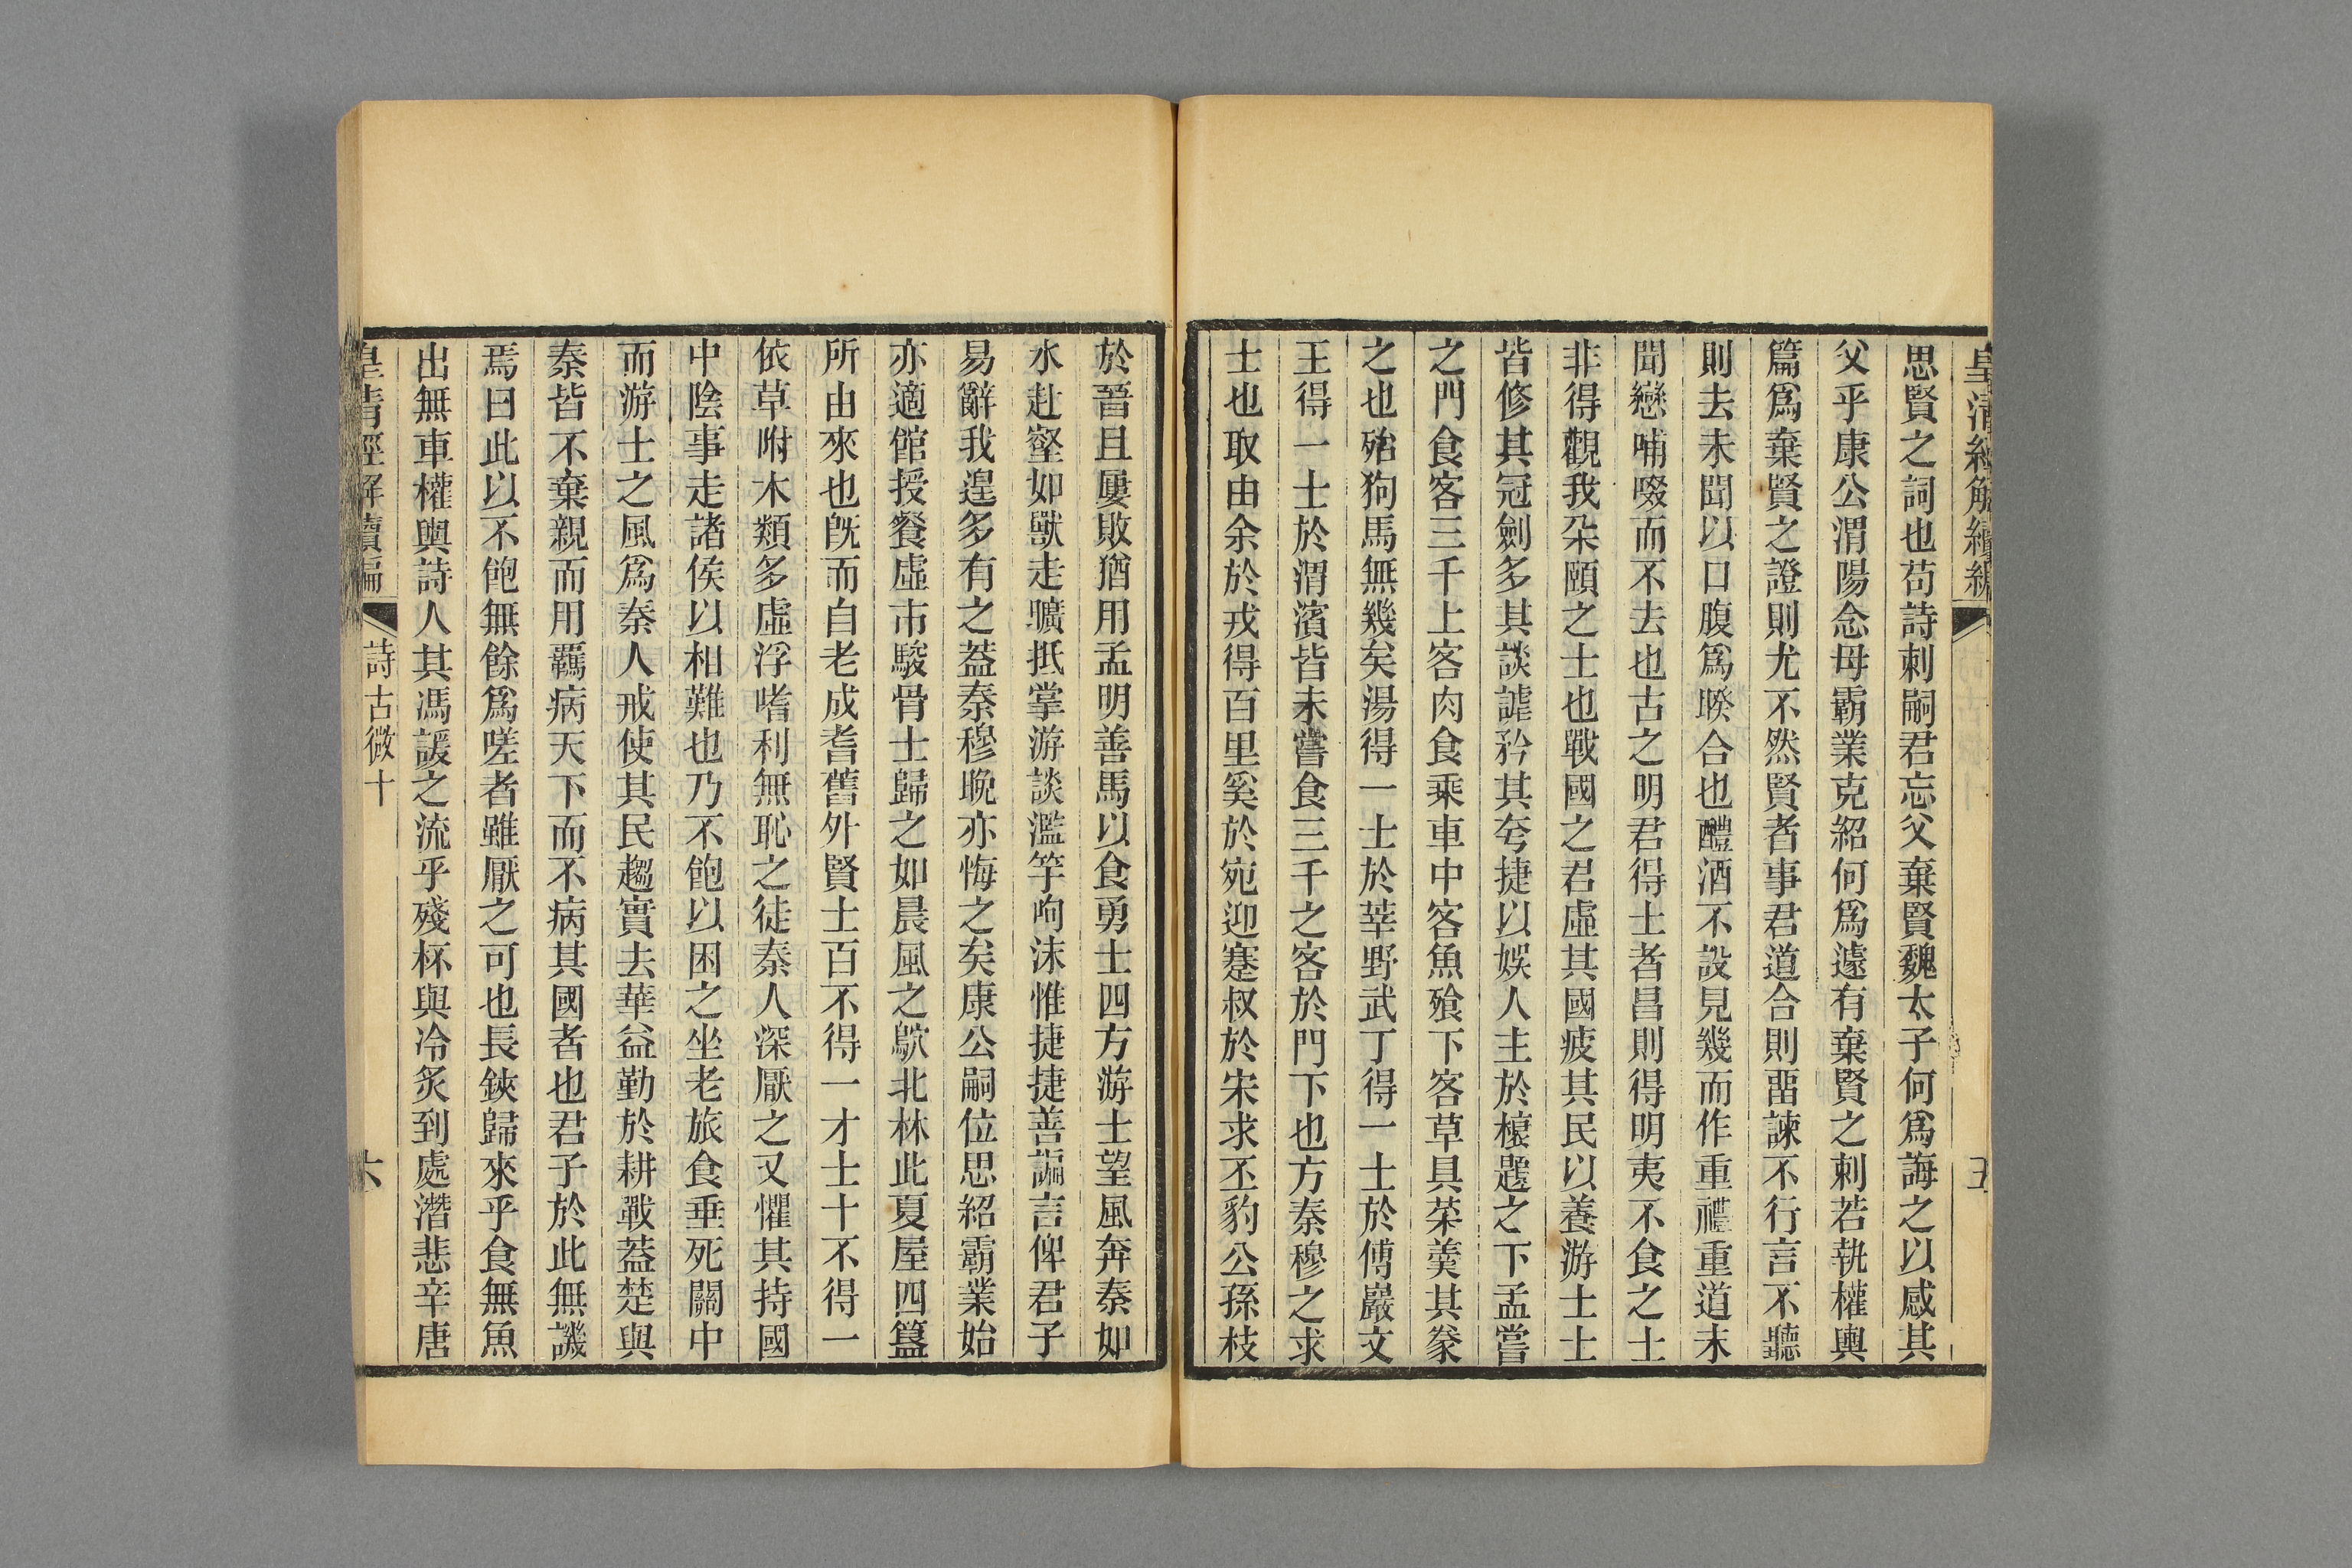 皇清經解續編
五
思賢之詞也苟詩刺嗣君忘父棄賢魏太子何爲誨之以感其
父乎康公渭陽念母霸業克紹何爲遽有棄賢之刺若執權輿
篇爲棄賢之證則尤不然賢者事君道合則畱諫不行言不聽
則去未聞以口腹爲睽合也醴酒不設見幾而作重禮重道未
聞戀哺啜而不去也古之明君得士者昌則得明夷不食之士
非得觀我朵頤之士也戰國之君虛其國疲其民以養游士士
皆修其冠劍多其談謔矜其夸捷以娛人主於櫰題之下孟嘗
之門食客三千上客肉食乘車中客魚飱下客草具菜羹其豢
之也殆狗馬無幾矣湯得一士於莘野武丁得一士於傅巖文
王得一士於渭濱皆未嘗食三千之客於門下也方秦穆之求
士也取由余於戎得百里奚於宛迎蹇叔於宋求丕豹公孫枝
於晉且屢敗猶用孟明善馬以食勇士四方游士望風奔秦如
水赴壑如獸走曠抵掌游談濫竽呴沫惟捷捷善諞言俾君子
易辭我遑多有之葢秦穆晩亦悔之矣康公嗣位思紹霸業始
亦適館授餐虛市駿骨士歸之如晨風之鴥北林此夏屋四簋
所由來也旣而自老成耆舊外賢士百不得一才士十不得一
依草咐木類多虛浮嗜利無恥之徒秦人深厭之又懼其持國
中陰事走諸侯以相難也乃不飽以困之坐老旅食垂死關中
而游士之風爲秦人戒使其民趨實去華益勤於耕戰葢楚與
秦皆不棄親而用羈病天下而不病其國者也君子於此無譏
焉曰此以不飽無餘爲嗟者雖厭之可也長鋏歸來乎食無魚
出無車權輿詩人其馮諼之流乎殘杯與冷炙到處潛悲辛唐
皇清經解續編
詩古微十
六